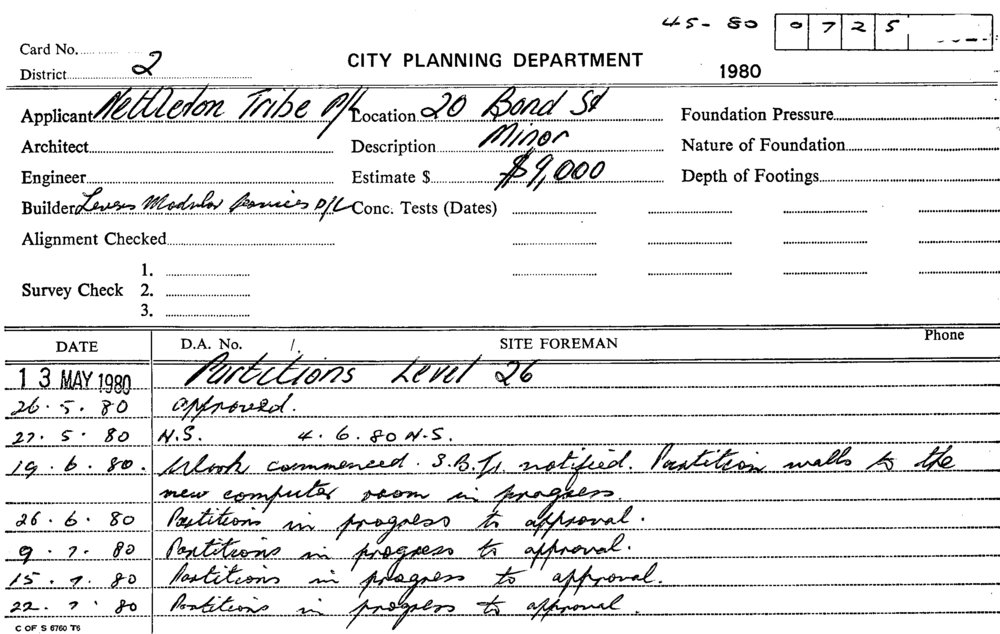 45-80 0725
Card No.
District 2
CITY PLANNING DEPARTMENT
1980
Applicant Nettleton Tribe P/L Location 20 Bond St Foundation Pressure
Architect Description Minor Nature of Foundation
Engineer Estimate $ $9,000 Depth of Footings
Builder Levers Modular Services P/L Conc. Tests (Dates)
Alignment Checked
1.
Survey Check 2.
3.
DATE D.A. No. /. SITE FOREMAN Phone
13 MAY 1980 Partitions Level 26
26.5.80 approved.
27.5.80 N.S. 4.6.80 N.S.
19.6.80. Work commenced. notified. Partition walls to the
new computer room in progress.
26.6.80 Partitions in progress to approval.
9.7.80 Partitions in progress to approval.
15.7.80 Partitions in progress to approval.
22.7.80 Partitions in progress to approval.
C OF S 6760 T6